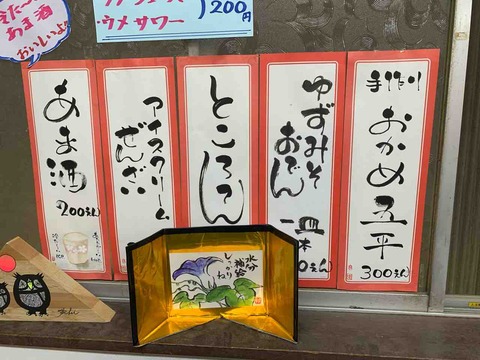 冷たーい
あま酒
おいしいよ!
ウメサワー
200円
手作り
おかめ五平
300えん
ゆずみそ
おでん
一皿
本
0えん
ところてん
アイスクリーム
ぜんざい
あま酒
200えん
水分
補給
しっかりね